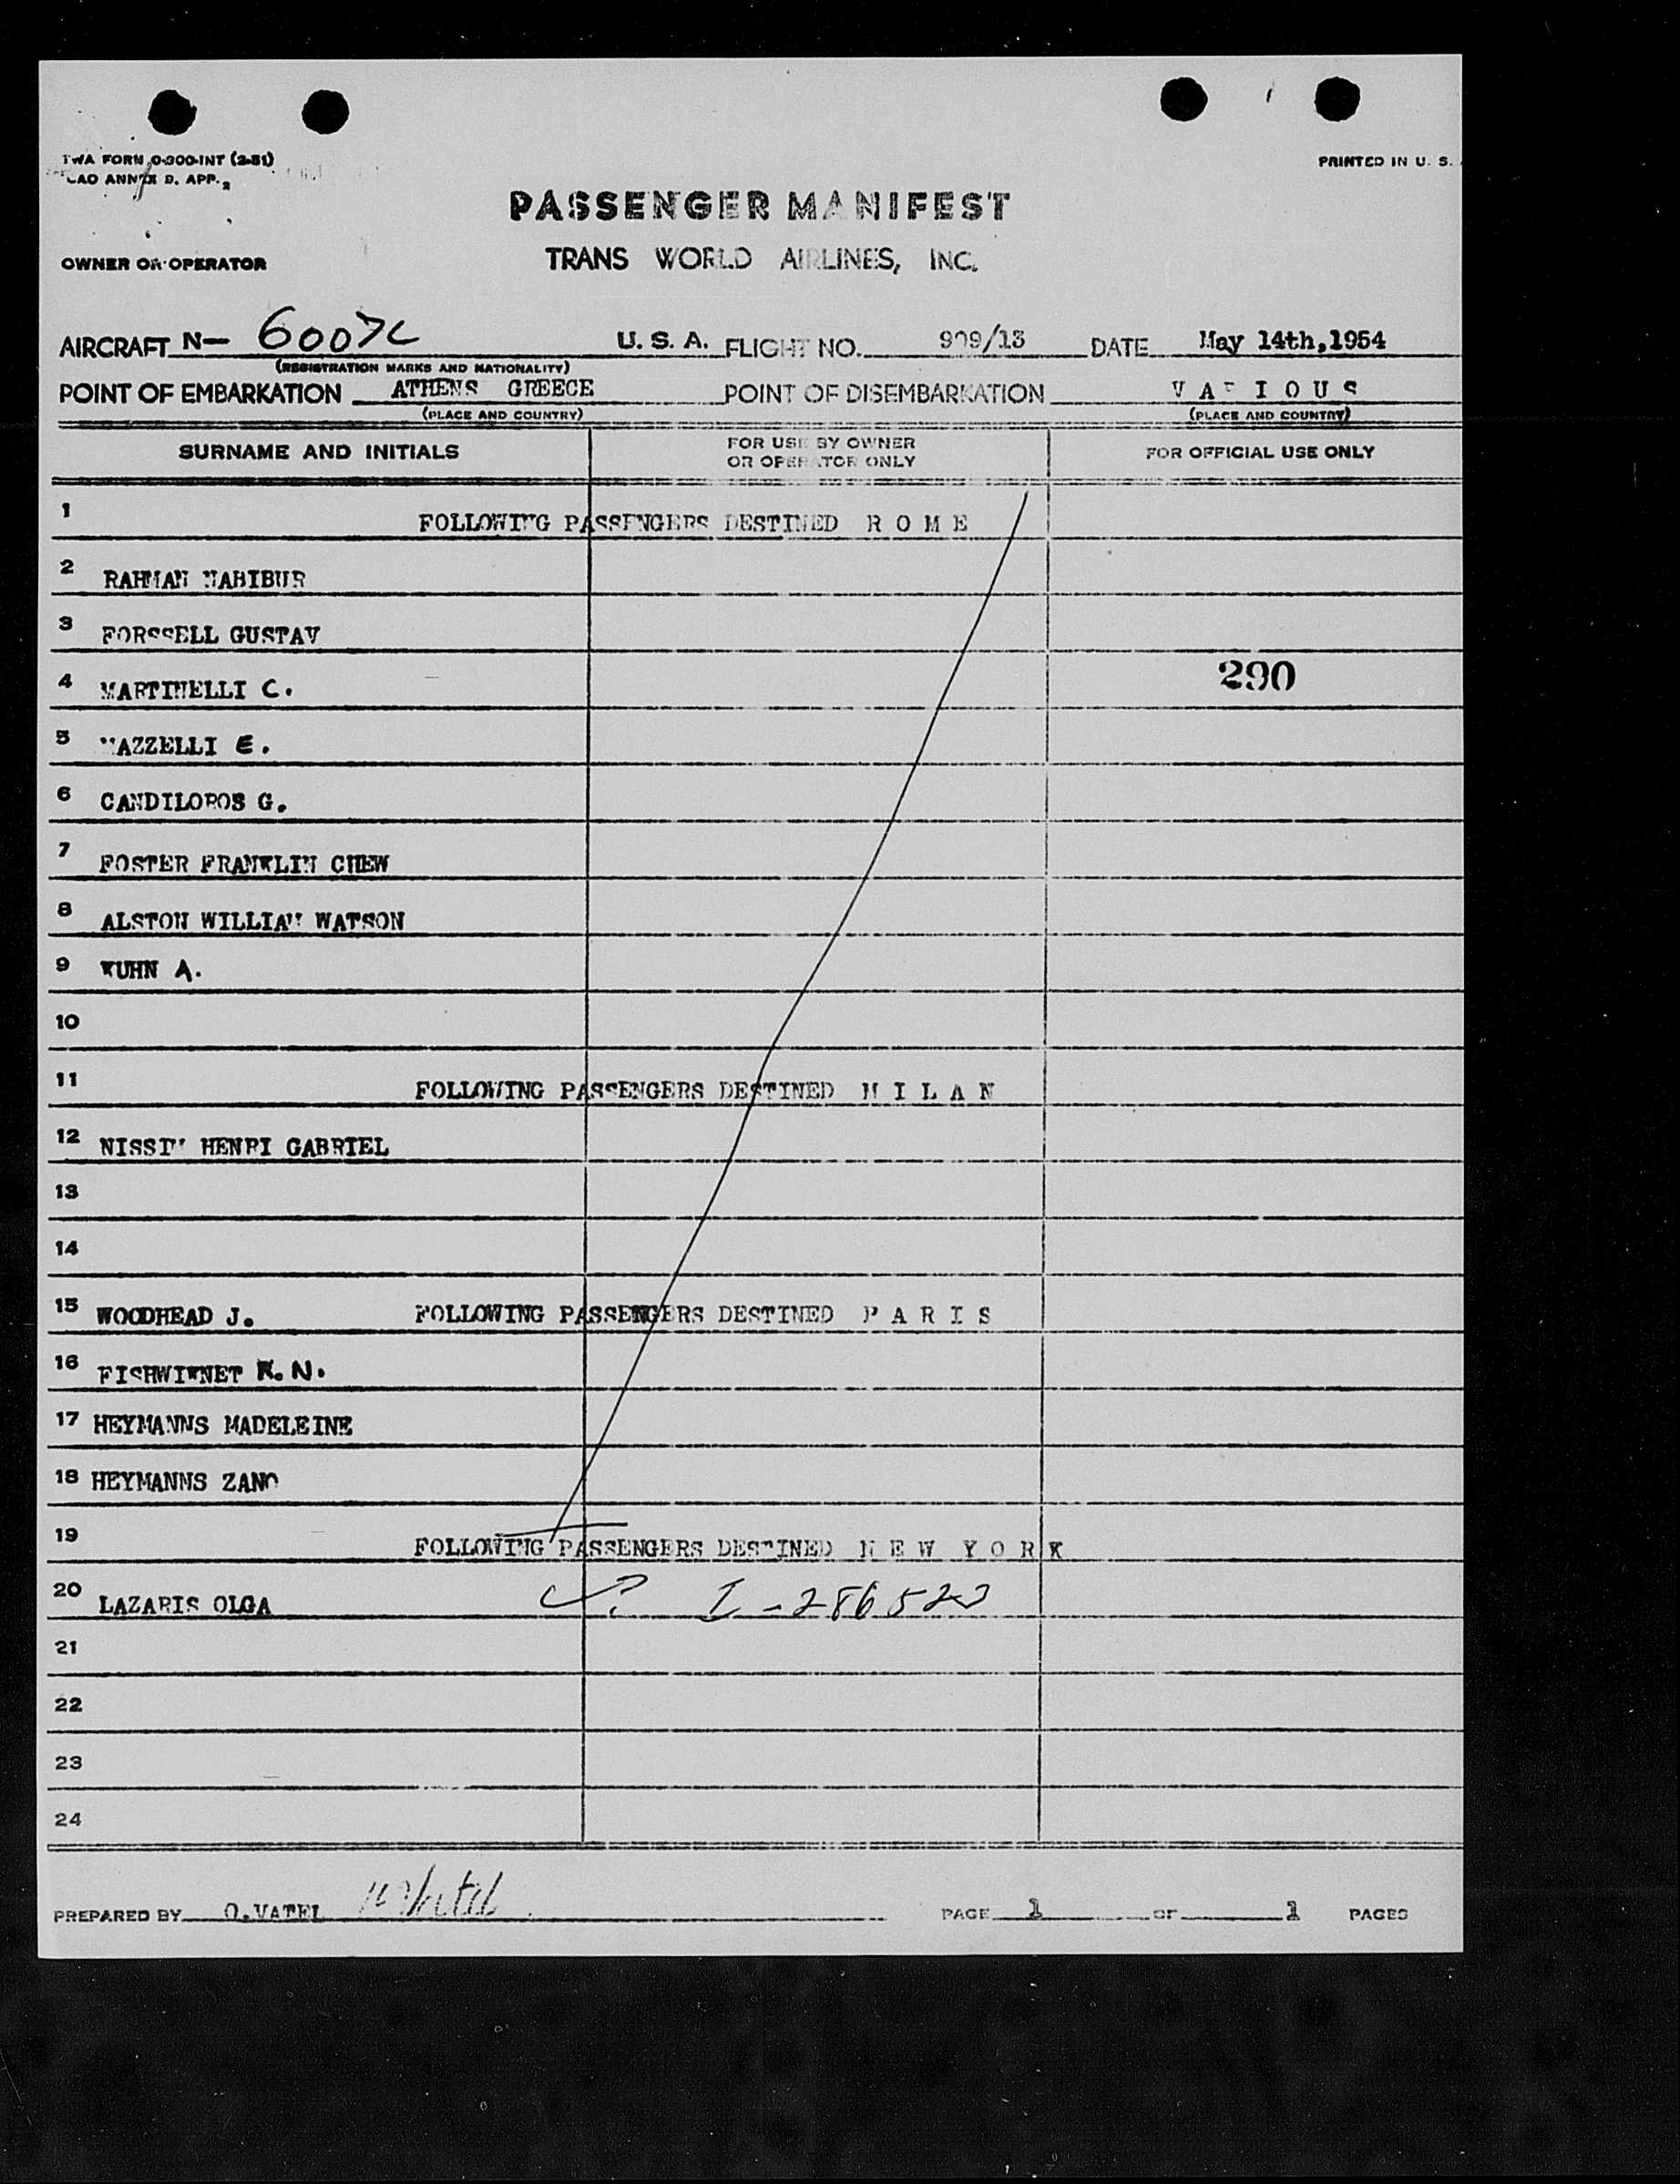 TWA FORM O-300-INT (2-51)
ICAO ANNEX 9, APP. 2
PRINTED IN U. S.
PASSENGER MANIFEST
OWNER OR OPERATOR TRANS WORLD AIRLINES, INC.
AIRCRAFT N- 6007C U. S. A. FLIGHT NO. 909/13 DATE May 14th,1954
(REGISTRATION MARKS AND NATIONALITY)
POINT OF EMBARKATION ATHENS GREECE POINT OF DISEMBARKATION V A R I O U S
(PLACE AND COUNTRY) (PLACE AND COUNTRY)
SURNAME AND INITIALS FOR USE BY OWNER OR OPERATOR ONLY FOR OFFICIAL USE ONLY
1 FOLLOWING PASSENGERS DESTINED R O M E
2 RAHMAN HABIBUR
3 FORSSELL GUSTAV
4 MARTINELLI C. 290
5 MAZZELLI E.
6 CANDILOROS G.
7 FOSTER FRANKLIN CHEW
8 ALSTON WILLIAM WATSON
9 KUHN A.
10
11 FOLLOWING PASSENGERS DESTINED M I L A N
12 NISSIM HENRI GABRIEL
13
14
15 WOODHEAD J. FOLLOWING PASSENGERS DESTINED P A R I S
16 K. N.
17 HEYMANNS MADELEINE
18 HEYMANNS ZANO
19 FOLLOWING PASSENGERS DESTINED N E W Y O R K
20 LAZARIS OLGA I-286523
21
22
23
24
PREPARED BY O.VATEL PAGE 1 OF 1 PAGES